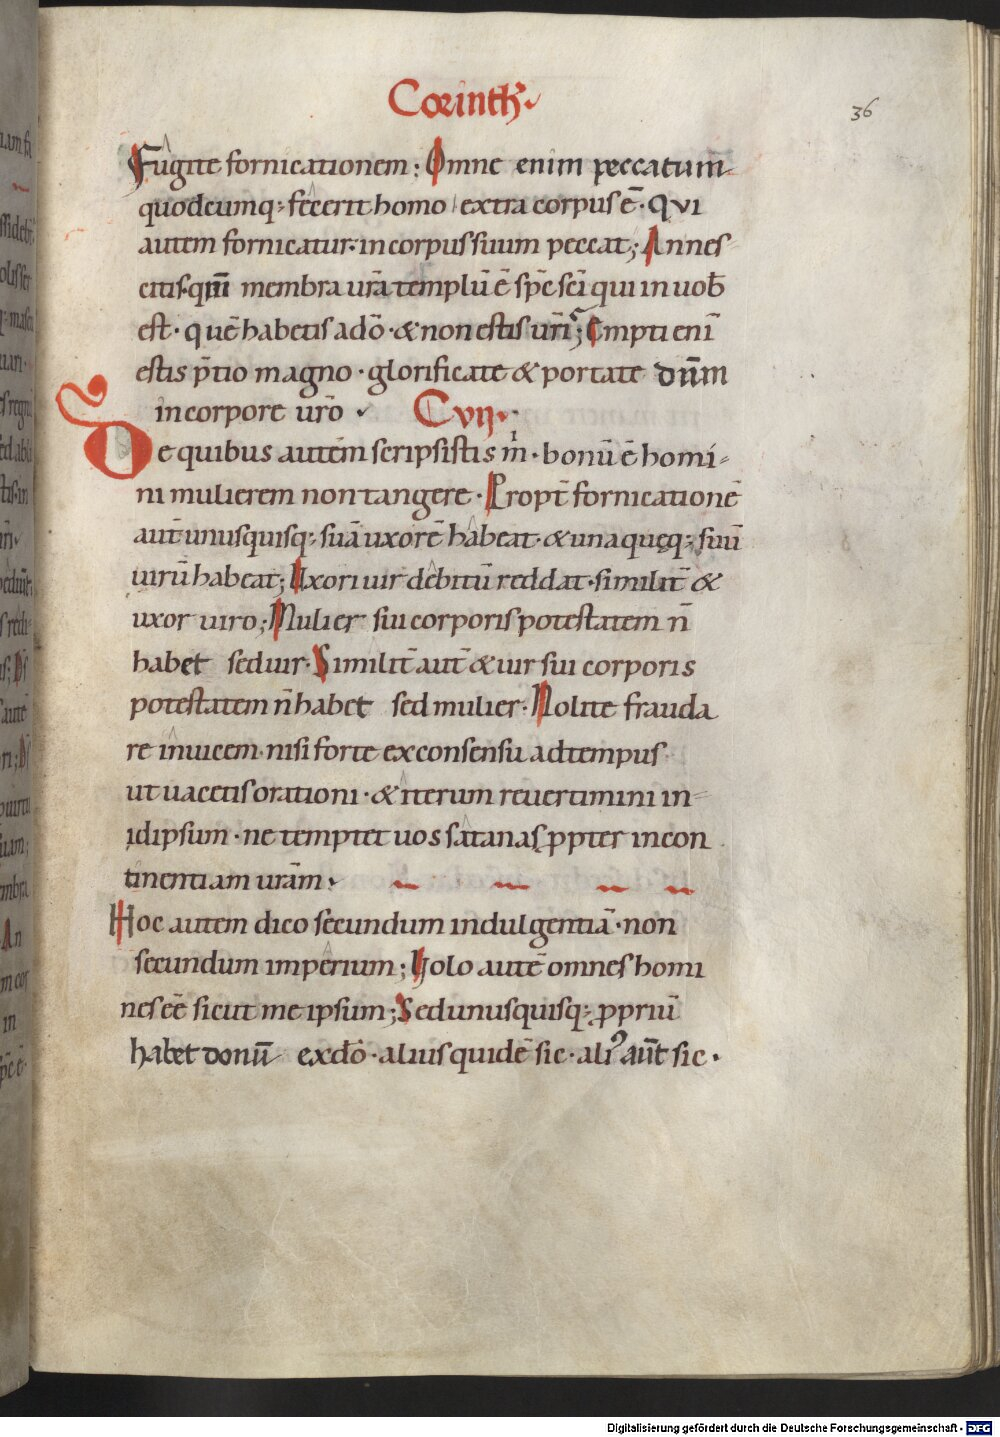 Corinth.
36
Fugite fornicationem; Omne enim peccatum
quodcumq; fecerit homo extra corpus ē · qui
autem fornicatur · in corpus suum peccat; An nes
citis · qm̄ membra ur̄a templū ē sp̄s sc̄i qui in uob̄
est · quē habetis a dō · & non estis ur̄i; Empti enī
estis p̄tio magno · glorificate & portate dūm
in corpore ur̄o · C VII ·
De quibus autem scripsistis m · bonū ē homi-
ni mulierem non tangere · Propt̄ fornicationē
aut̄ unusquisq; suā uxorē habeat · & unaquęq; suū
uirū habeat; Uxori uir debitū reddat · similit̄ &
uxor uiro; Mulier sui corporis potestatem n̄
habet sed uir · Similit̄ aut̄ & uir sui corporis
potestatem n̄ habet sed mulier · Nolite frauda
re inuicem · nisi forte ex consensu ad tempus ·
ut uacetis orationi · & iterum reuertimini in-
idipsum · ne temptet uos satanas ꝓpter incon
tinentiam ur̄am ·
Hoc autem dico secundum indulgentiā · non
secundum imperium; Uolo autē omnes homi
nes eē sicut me ipsum; Sed unusquisq; ꝓpriū
habet donū ex dō · alius quidē sic · ali᾽ aūt sic ·
Digitalisierung gefördert durch die Deutsche Forschungsgemeinschaft - DFG